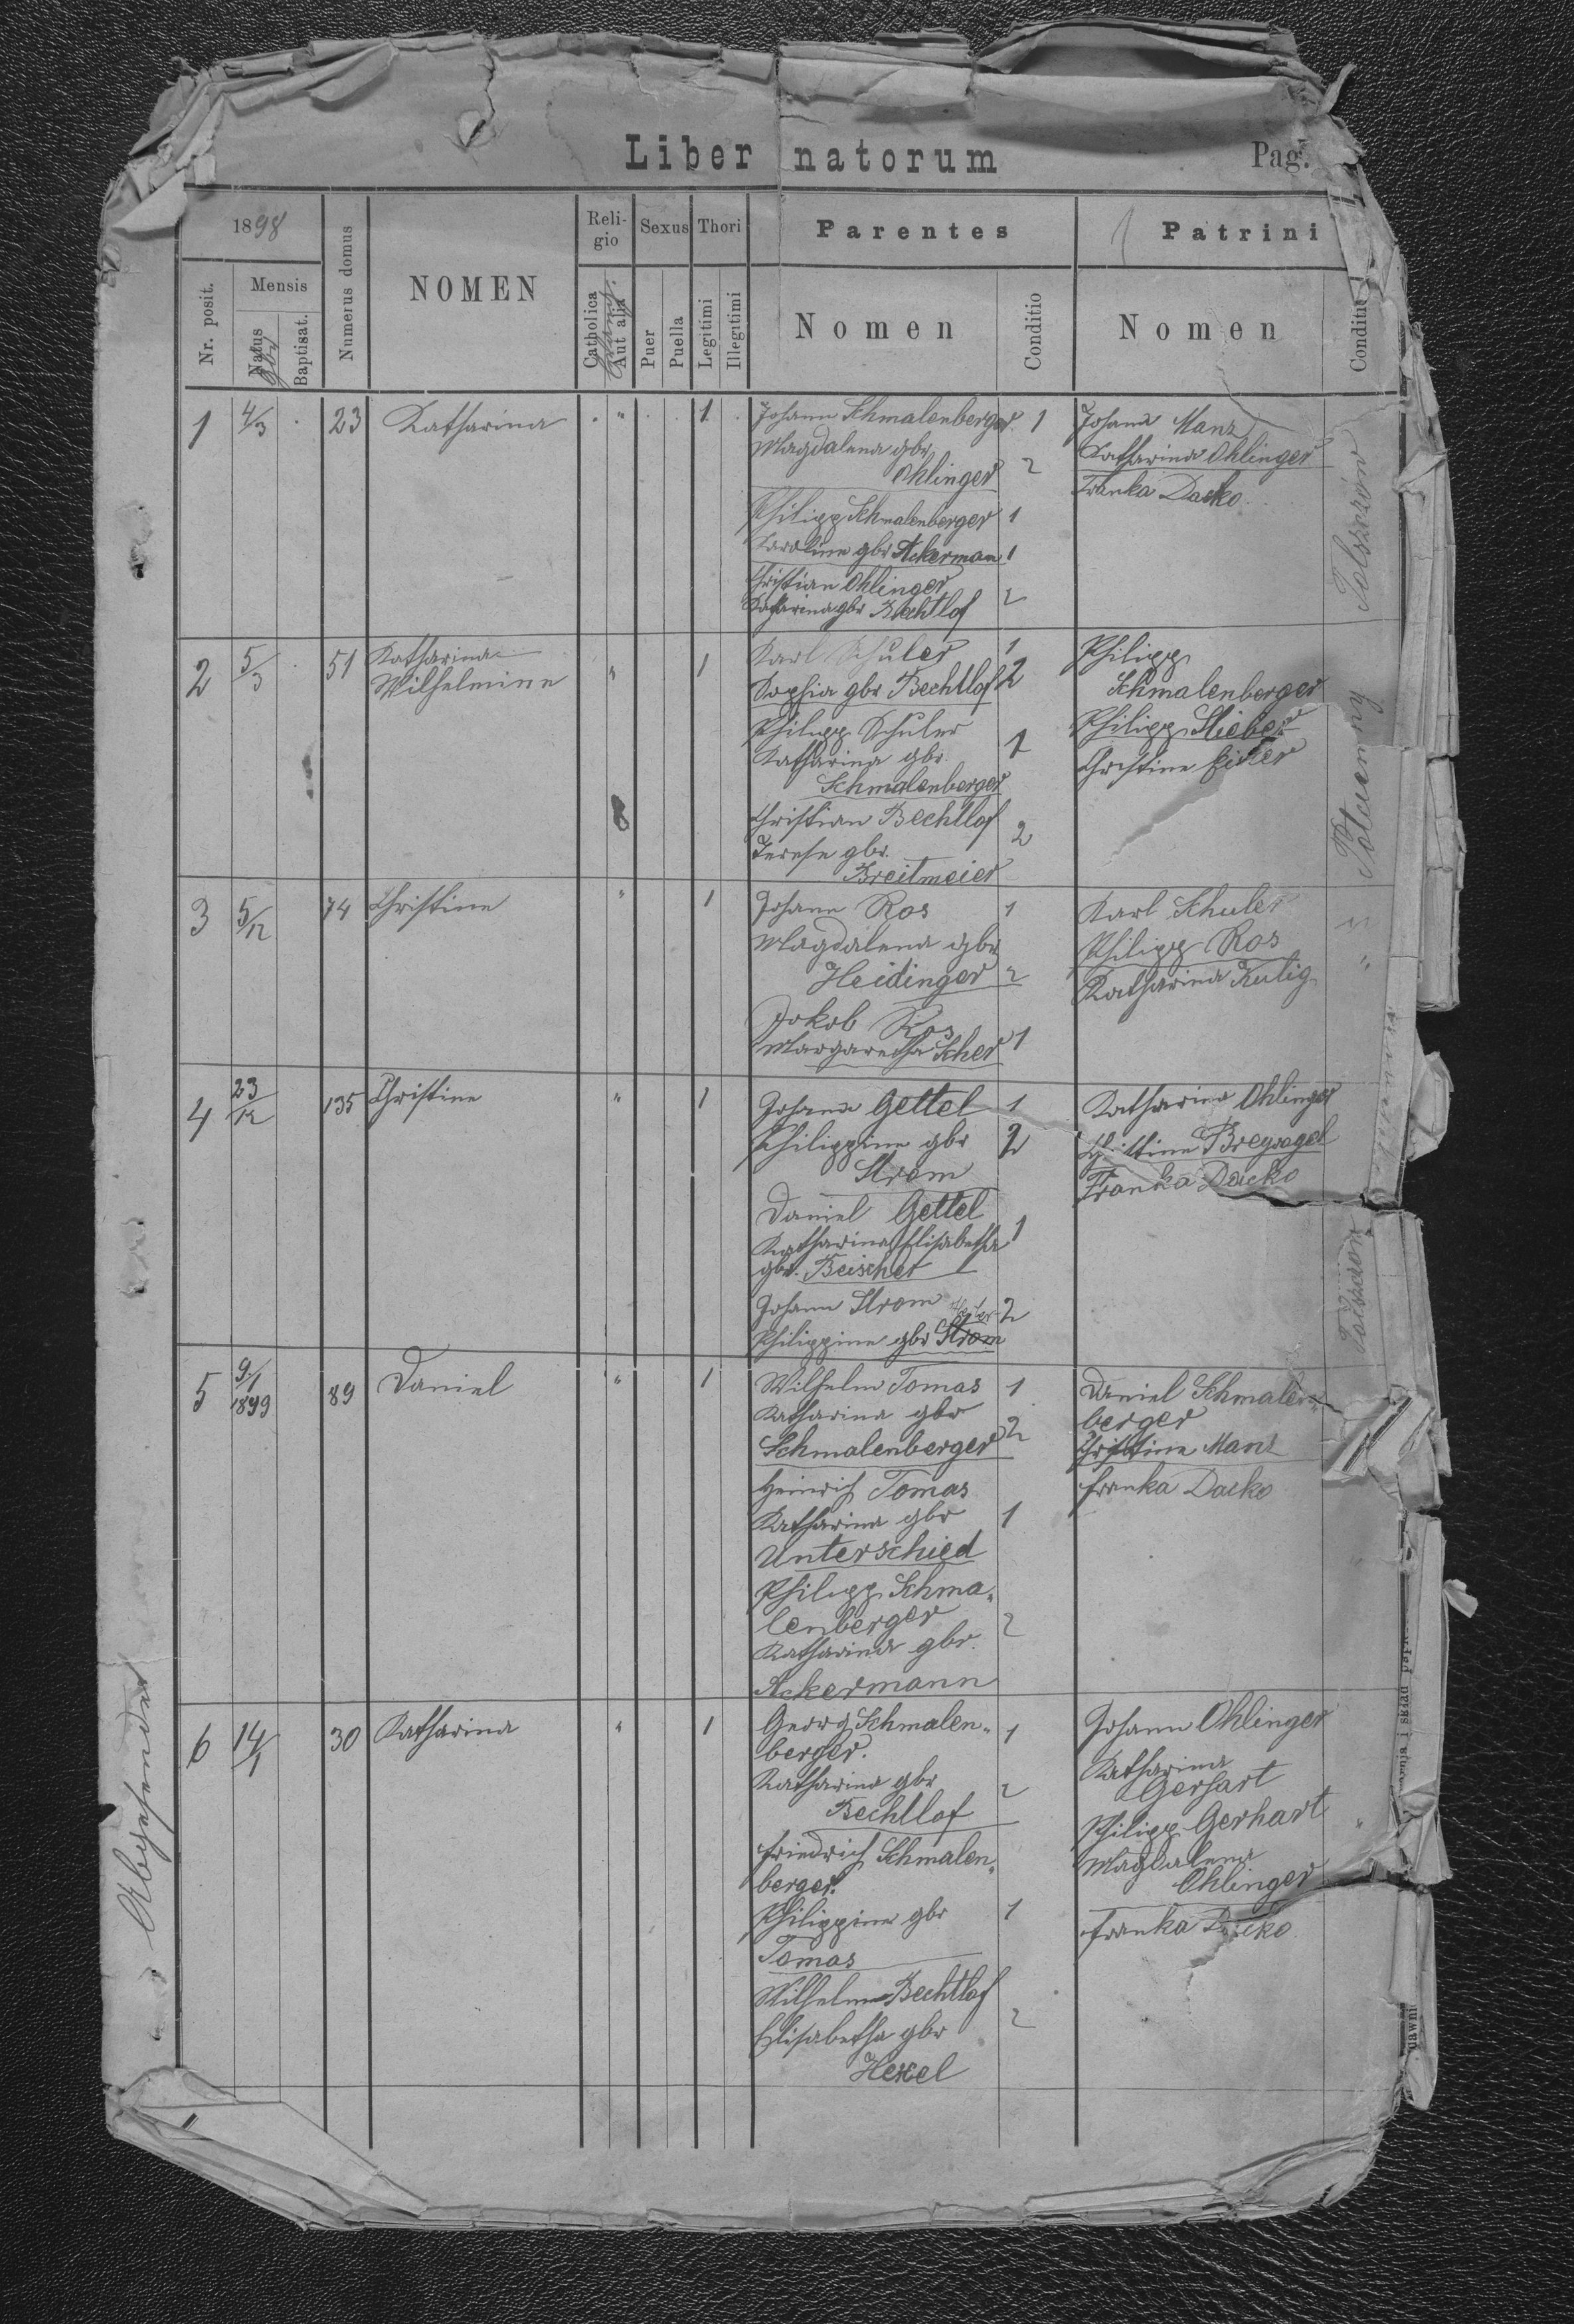 Liber natorum
Pag.
1898
Numerus domus
NOMEN
Reli-
gio
Sexus
Thori
Parentes
1
Patrini
Nr. posit.
Mensis
Natus
gbr
Baptisat.
Catholica
Aut alia
Puer
Puella
Legitimi
Illegitimi
Nomen
Conditio
Nomen
Conditio
1
4/3
23
Katharina
"
1
Johann Schmalenberger 1
Magdalena gbr
Ohlinger 2
Philipp Schmalenberger 1
Karoline gbr Ackerman 1
Christian Ohlinger
Katharina gbr Bechtlof 2
Johann Manz
Katharina Ohlinger
Franka Dacko
2
5/3
51
Katharina
Wilhelmine
"
1
Karl Schuler 1
Sophia gbr Bechtlof 2
Philipp Schuler
Katharina gbr. 1
Schmalenberger
Christian Bechtlof 2
Terese gbr.
Breitmeier
Philipp
Schmalenberger
Philipp Stieber
Christine
3
5/12
74
Christine
"
1
Johann Ros 1
Magdalena gbr
Heidinger 2
Jakob Ros
Margaretha Scher 1
Karl Schuler
Philipp Ros
Katharina Kulig
"
4
23/12
135
Christine
"
1
Johann Gettel 1
Philippine gbr 2
Strom
Daniel Gettel
Katharina Elisabetha 1
gbr. Beischer
Johann Strom 2
Philippine gbr Strom
Katharina Ohlinger
Christine Breyvogel
Franka Dacko
5
9/1
1899
89
Daniel
"
1
Wilhelm Tomas 1
Katharina gbr
Schmalenberger 2
Heinrich Tomas
Katharina gbr 1
Unterschied
Philipp Schma„
lenberger 2
Katharina gbr.
Ackermann
Daniel Schmalen„
berger
Christine Manz
Franka Dacko
6
14/1
30
Katharina
"
1
Georg Schmalen„ 1
berger.
Katharina gbr 2
Bechtlof
Friedrich Schmalen„
berger.
Philippine gbr 1
Tomas
Wilhelm Bechtlof
Elisabetha gbr 2
Hexel
Johann Ohlinger
Katharina
Gerhart
Philipp Gerhart
Magdalena
Ohlinger
Franka Dacko
"